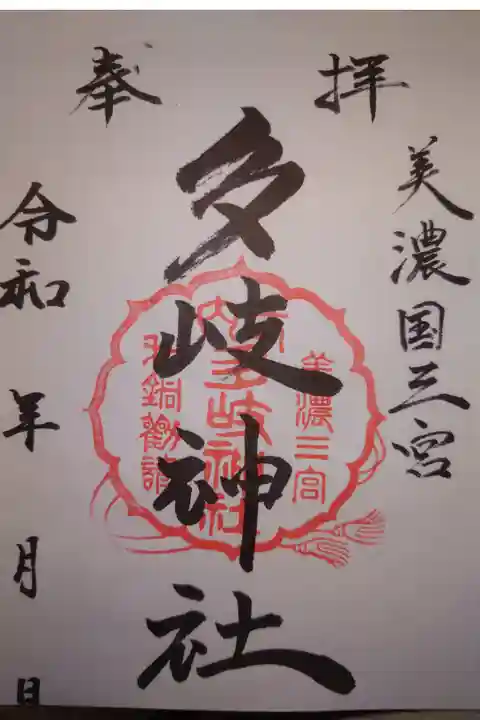 奉拝
美濃国三宮
多岐神社
美濃三宮
多岐神社
令和 年 月 日